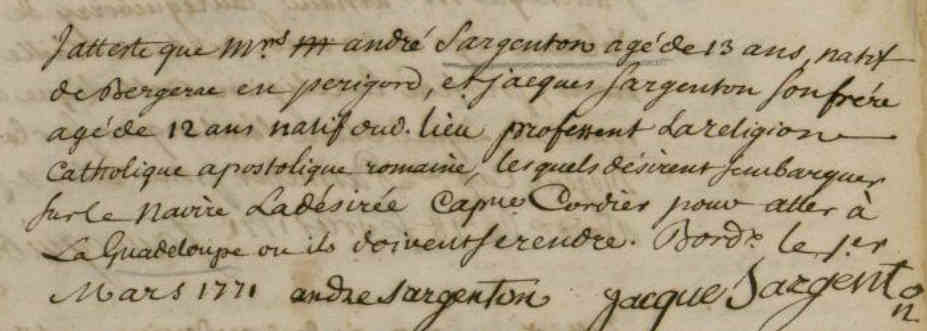 J'atteste que Mrs M andré Sargenton agé de 13 ans, natif
de Bergerac en perigord, et jacques Sargenton son frére
agé de 12 ans natif dud. lieu professent La religion
Catholique apostolique romaine, lesquels désirent sembarquer
sur le Navire La désirée Capne. Cordier pour aller à
La Guadeloupe ou ils doivent se rendre. Bordx. le 1er.
Mars 1771 andre sargenton jacque Sargenton